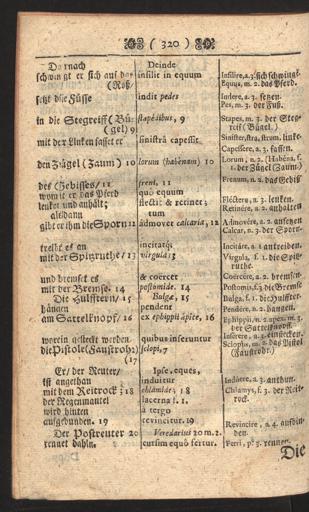 ( 320 )
Darnach
schwingt er sich auf das
(Roß/
setzt die Füsse
in die Stegreiff (Bü-
gel) 9
mit der Lincken fasset er
den Zügel (Zaum) 10
des (Gebisses/ 11
womit er das Pferd
lencket und anhält;
alsdann
gibt er ihm die Sporn 12
treibt es an
mit der Spitzruthe/ 13
und bremset es
mit der Bremse. 14
Die Hulfftern/ 15
hangen
am Sattelknopf/ 16
worein gesteckt werden
die Pistole (Faustrohr)
(17
Er/ der Reuter/
ist angethan
mit dem Reitrock; 18
der Regenmantel
wird hinten
aufgebunden. 19
Der Postreuter 20
rennet dahin.
Deinde
insilit in equum
indit pedes
stapedibus, 9
sinistrâ capessit
lorum (habenam) 10
freni, 11
quô equum
flectit & retinet;
tum
admovet calcaria, 12
incitatq;
virgulâ 13
& coërcet
postomide. 14
Bulgæ, 15
pendent
ex ephippii ápice, 16
quibus inseruntur
sclopi, 17
Ipse, eques,
induitur
chlamide; 18
lacerna f. 1.
à tergo
revincitur. 19
Veredarius 20 m. 2.
cursim equô fertur.
Insilire, a. 3. sich schwingen.
Equus, m. 2. das Pferd.
Indere, a. 3. setzen.
Pes, m. 3. der Fuß.
Stapes, m. 3. der Steg-
reif (Bügel.)
Sinister, stra, strum. lincke.
Capessere, a. 3. fassen.
Lorum, n. 2. (Habéna, f.
1. der Zügel (Zaum.)
Frenum, n. 2. das Gebiß
Fléctere, a. 3. lencken.
Retinére, a. 2. anhalten
Admovére, a. 2. ansetzen
Calcar, n. 3. der Sporn.
Incitáre, a. 1 antreiben.
Virgula, f. 1. die Spitz-
ruthe.
Coërcére, a. 2. bremsen.
Postomis, f. 3. die Bremse
Bulga, f. 1. die Hulfter.
Pendére, n. 2. hangen.
der Sattelknopf.
Insérere, a. 3. einstecken.
Sclopus, m. 2. das Pistol
(Faustrohr.)
Indúere, a. 3. anthun.
Chlamys, f. 3. der Reit-
rock.
Revincire, a. 4. aufbin-
den.
Ferri, p. 3. rennen.
Die